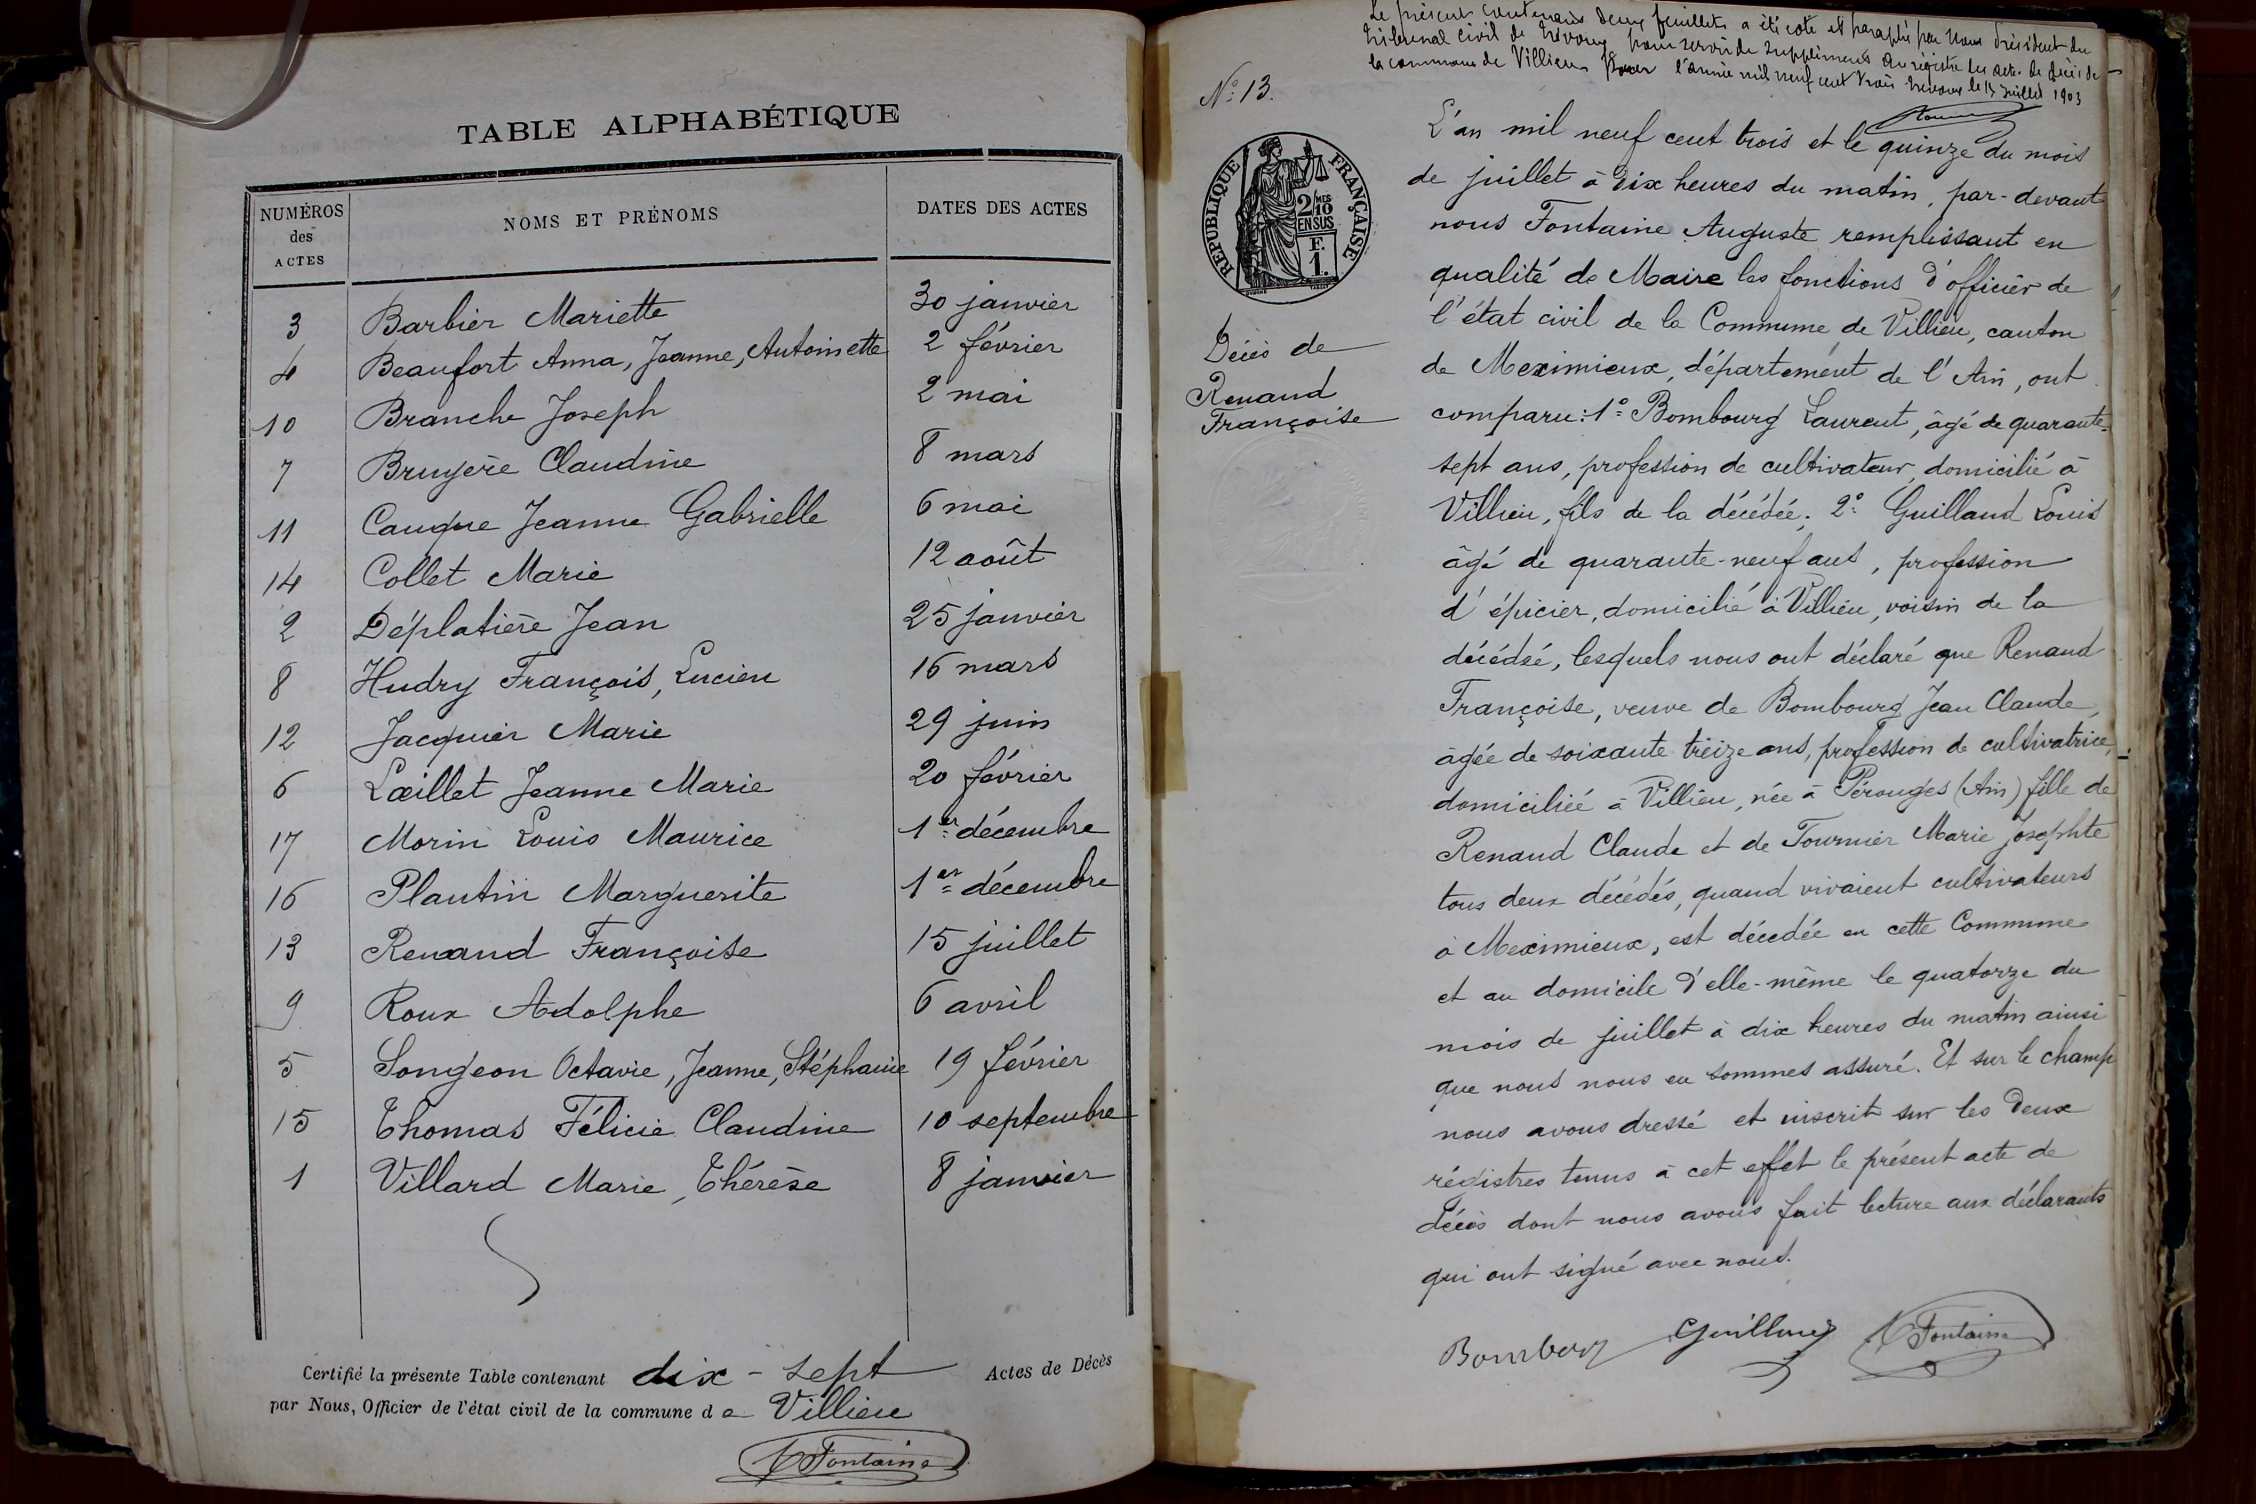 TABLE ALPHABÉTIQUE
NUMÉROS des ACTES NOMS ET PRÉNOMS DATES DES ACTES
3 Barbier Mariette 30 janvier
4 Beaufort Anna, Jeanne, Antoinette 2 février
10 Branche Joseph 2 mai
7 Bruyère Claudine 8 mars
11 Caugne Jeanne Gabrielle 6 mai
14 Collet Marie 12 août
2 Déplatière Jean 25 janvier
8 Hudry François, Lucien 16 mars
12 Jacquier Marie 29 juin
6 Lœillet Jeanne Marie 20 février
17 Morin Louis Maurice 1er décembre
16 Plantin Marguerite 1er décembre
13 Renand Françoise 15 juillet
9 Roux Adolphe 6 avril
5 Songeon Octavie, Jeanne, Stéphanie 19 février
15 Thomas Félicie Claudine 10 septembre
1 Villard Marie, Thérèse 8 janvier
Certifié la présente Table contenant dix-sept Actes de Décès
par Nous, Officier de l'état civil de la commune de Villieu
A Fontaine
Le présent contenant deux feuillets a été coté et paraphé par Nous Président du
tribunal civil de Trévoux pour servir de supplément au registre des actes de décès de
la commune de Villieu pour l'année mil neuf cent trois Trévoux le 15 juillet 1903
No. 13.
RÉPUBLIQUE FRANÇAISE
2 MES
10
EN SUS
F.
1.
Décès de
Renand
Françoise
L'an mil neuf cent trois et le quinze du mois
de juillet à dix heures du matin, par-devant
nous Fontaine Auguste remplissant en
qualité de Maire les fonctions d'officier de
l'état civil de la Commune de Villieu, canton
de Meximieux, département de l'Ain, ont
comparu: 1o Bombourg Laurent, âgé de quarante-
sept ans, profession de cultivateur, domicilié à
Villieu, fils de la décédée; 2o Guilland Louis
âgé de quarante-neuf ans, profession
d'épicier, domicilié à Villieu, voisin de la
décédée, lesquels nous ont déclaré que Renand
Françoise, veuve de Bombourg Jean Claude,
âgée de soixante treize ans, profession de cultivatrice,
domiciliée à Villieu, née à Pérouges (Ain) fille de
Renand Claude et de Tournier Marie Josephte
tous deux décédés, quand vivaient cultivateurs
à Meximieux, est décédée en cette Commune
et au domicile d'elle-même le quatorze du
mois de juillet à dix heures du matin ainsi
que nous nous en sommes assuré. Et sur le champ
nous avons dressé et inscrit sur les deux
régistres tenus à cet effet le présent acte de
décès dont nous avons fait lecture aux déclarants
qui ont signé avec nous.
Bombourg Guilland A Fontaine